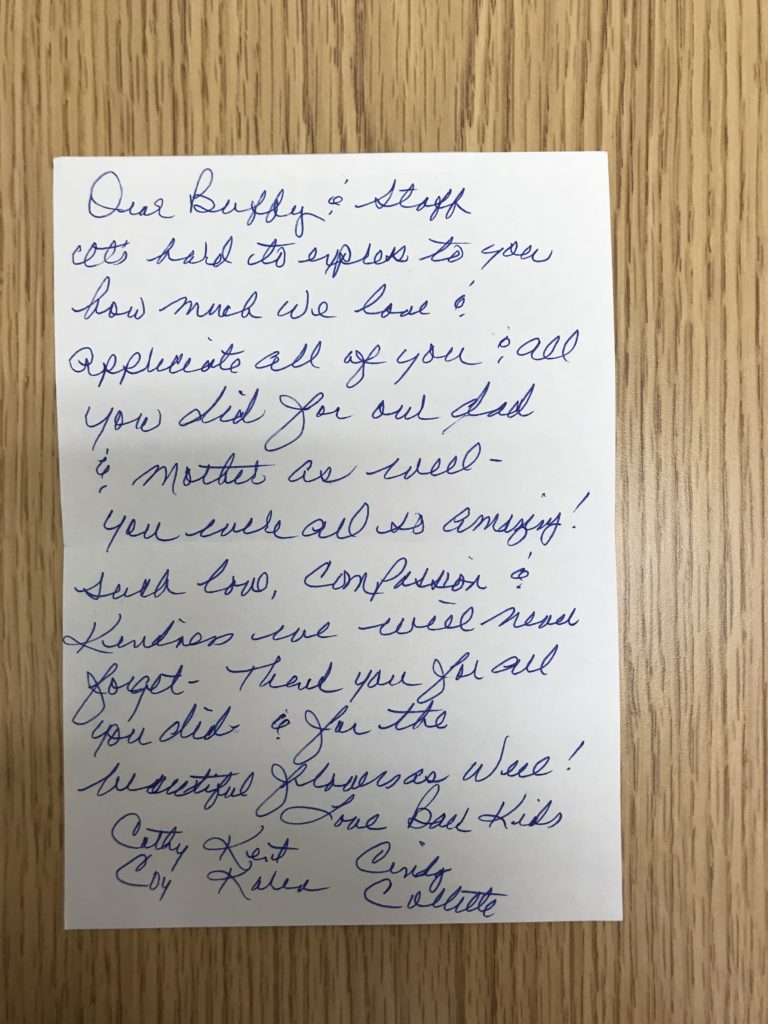 Dear Buffy & Staff
It's hard to express to you
how much we love &
appreciate all of you & all
you did for our dad
& mother as well -
You were all so amazing!
Such love, Compassion &
Kindness we will never
forget - Thank you for all
you did - & for the
beautiful flowers as well!
Love Ball Kids
Cathy Kent Cindy
Coy Karen Collette